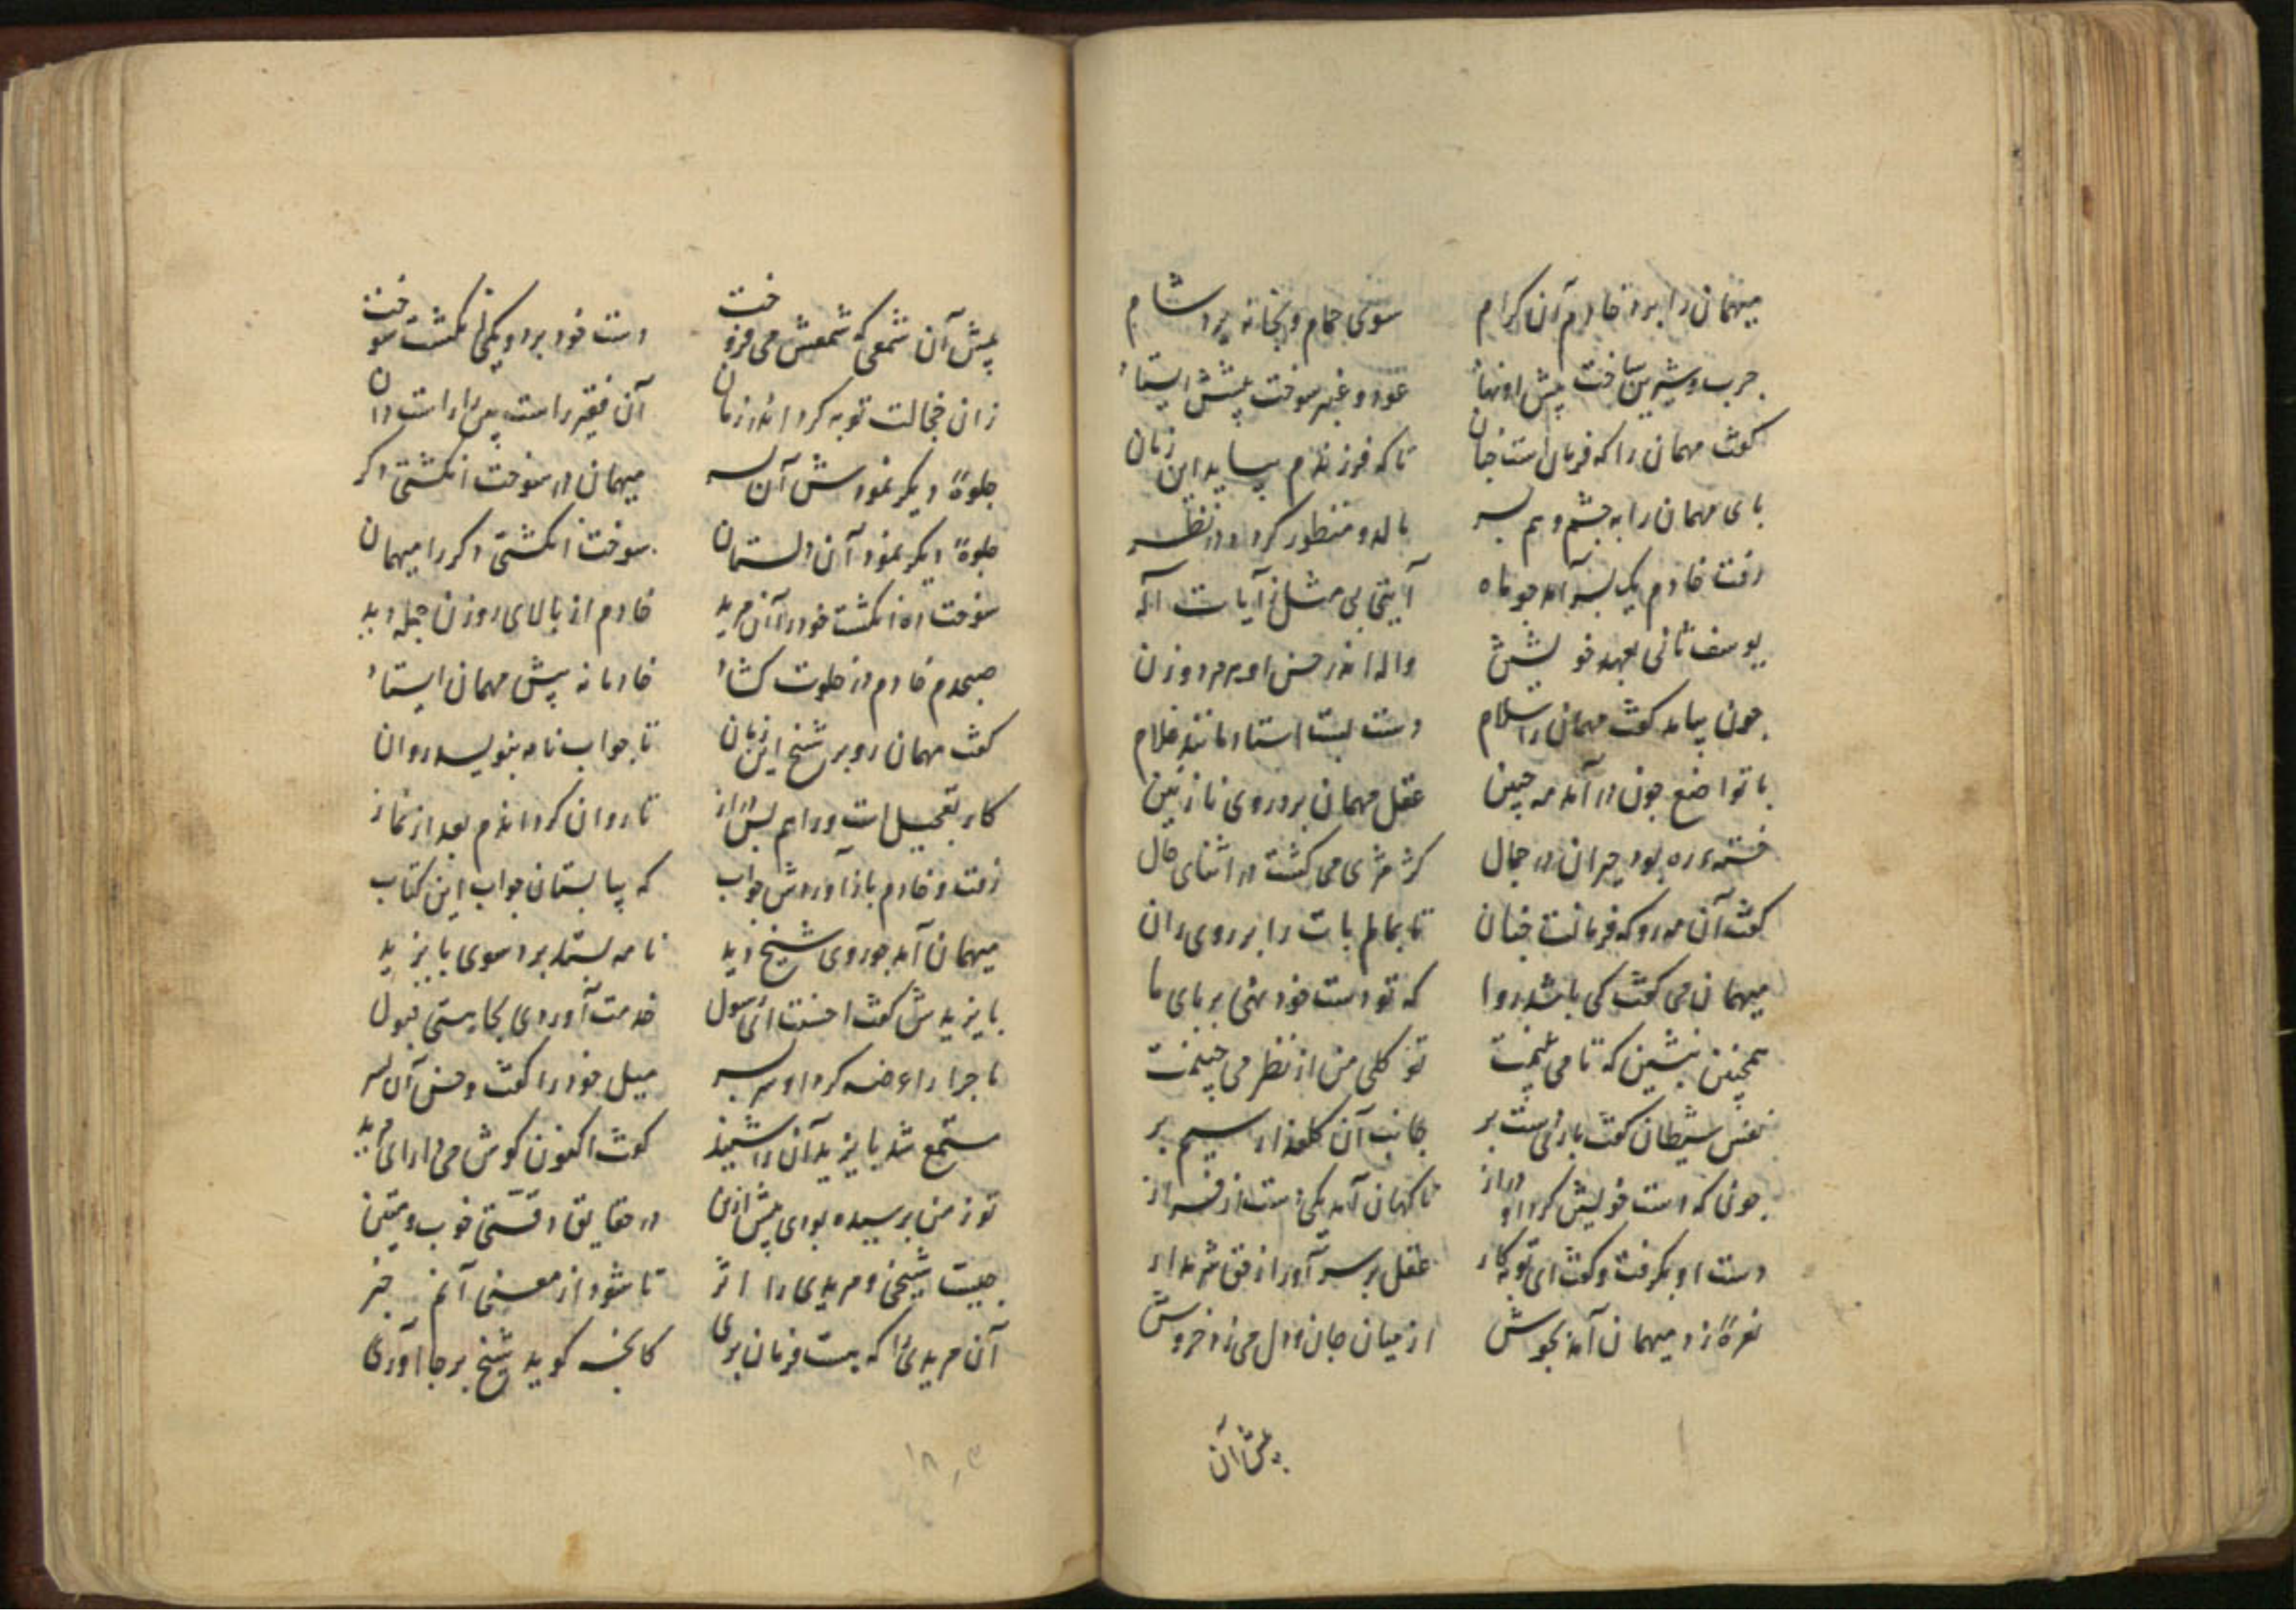 میهمان را برد خادم آن کرام سوی حمام و بخانه برد شام
چرب و شیرین ساخت پیش او نهاد عود و عنبر سوخت پیشش ایستاد
گفت مهمان را که فرمان است جان تا که فرزندم بیاید این زمان
پای مهمان را به چشم و هم بسر مالد و منظور کردد در نظر
رفت خادم یک پسر آمد چو ماه آیتی بی مثل از آیات اله
یوسف ثانی بعهد خویشتن واله اندر حسن او هر مرد و زن
چون بیامد گفت مهمان را سلام دست بست استاد مانند غلام
با تواضع چون در آمد مه جبین عقل مهمان برد روی نازنین
بود حیران در جمال کژ مژی می گشت در اثنای حال
گفت آن مه رو که فرمانست چنان تا بمالم پات را بر روی ران
میهمان می گفت کی باشد روا که تو دست خود نهی بر پای ما
همچنین بنشین که تا می بینمت تو گلی من از نظر می چینمت
نفس شیطان گفت بار دست بر جانب آن گلعذار سیم بر
چونکه دست خویش کرد او دراز ناگهان آمد یکی دست از فراز
دست او بگرفت و گفت ای توبه کار عقل بر سر آور از حق شرم دار
نعرهٔ زد میهمان آمد بجوش از میان جان و دل می زد خروش
پیش آن
پیش آن شمعی که شمعش می فروخت دست خود برد و یکی انگشت سوخت
زان خجالت توبه کرد اندر زمان آن فقیر راست بین راست دان
جلوهٔ دیگر نمودش آن پسر میهمان در سوخت انگشتی دگر
جلوهٔ دیگر نمود آن دلستان سوخت انگشتی دگر را میهمان
سوخت ده انگشت خود را آن مرید خادم از بالای روزن جمله دید
صبحدم خادم در خلوت گشاد خادمانه پیش مهمان ایستاد
گفت مهمان رو بر شیخ این زمان تا جواب نامه بنویسد روان
کار بتعجیل است و راهم بس دراز تا روان گردانندم بعد از نماز
رفت و خادم باز آوردش جواب که بیا بستان جواب این کتاب
میهمان آمد چو روی شیخ دید نامه بستد برد سوی بایزید
بایزیدش گفت احسنت ای رسول خدمت آوردی بجا هستی قبول
ماجرا را عرضه کرد او سر بسر میل خود را گفت و حسن آن پسر
مستمع شد بایزید آن را شنید گفت اکنون گوش می دار ای مرید
تو ز من پرسیده بودی پیش ازین در حقایق دقتی خوب و متین
چیست شیخی و مریدی را اثر تا شود از معنی آنم خبر
آن مریدی دان که هست فرمان بری کانچه گوید شیخ بر جا آوری